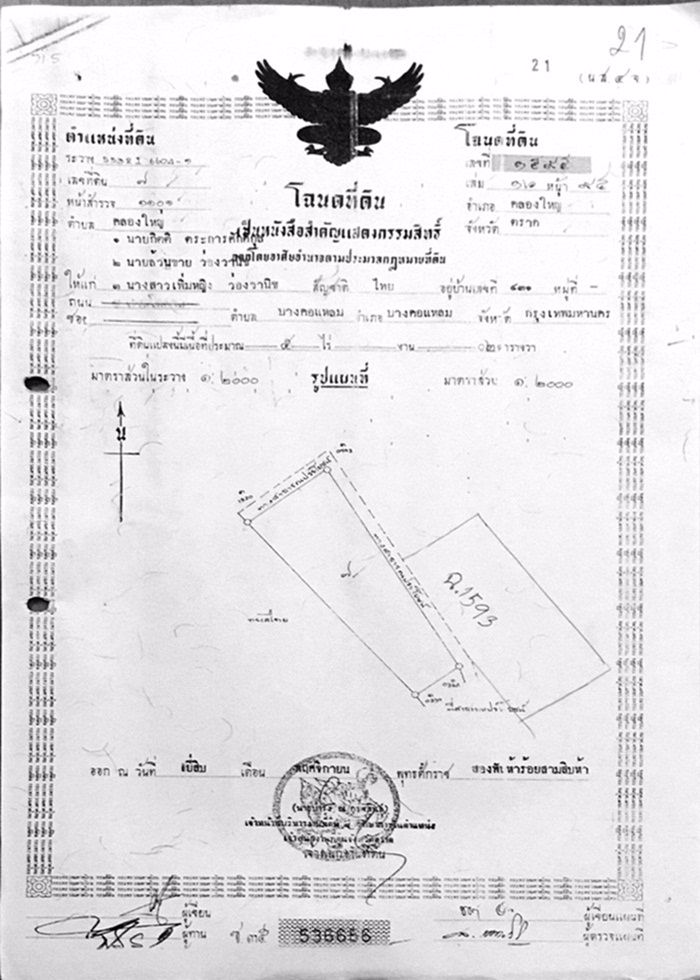 21
21
(น ส ๔ จ)
ตำแหน่งที่ดิน
โฉนดที่ดิน
ระวาง
เลขที่ ๑๕๙๕
เลขที่ดิน ๗
เล่ม ๑๖ หน้า ๙๕
หน้าสำรวจ ๑๑๐๑
อำเภอ คลองใหญ่
ตำบล คลองใหญ่
จังหวัด ตราด
โฉนดที่ดิน
เป็นหนังสือสำคัญแสดงกรรมสิทธิ์
ออกโดยอาศัยอำนาจตามประมวลกฎหมายที่ดิน
๑ นายกิตติ
๒ นายล้วนชาย ว่องวานิช
ให้แก่ ๓ นางสาวเพิ่มหญิง ว่องวานิช สัญชาติ ไทย อยู่บ้านเลขที่ ๔๓๑ หมู่ที่ -
ถนน
ซอย ตำบล บางคอแหลม อำเภอ บางคอแหลม จังหวัด กรุงเทพมหานคร
ที่ดินแปลงนี้มีเนื้อที่ประมาณ ๕ ไร่ งาน ๐๒ ตารางวา
มาตราส่วนในระวาง ๑:๒๐๐๐ รูปแผนที่ มาตราส่วน ๑:๒๐๐๐
น
ทางสาธารณประโยชน์
ทางสาธารณประโยชน์
๗
ฉ.1593
ทะเลไทย
ที่สาธารณประโยชน์
ออก ณ วันที่ ยี่สิบ เดือน พฤศจิกายน พุทธศักราช สองพันห้าร้อยสามสิบห้า
เจ้าพนักงานที่ดิน
ผู้เขียน
ผู้เขียนแผนที่
ผู้ทาน
ช.๓๕ 536656
ผู้ตรวจแผนที่